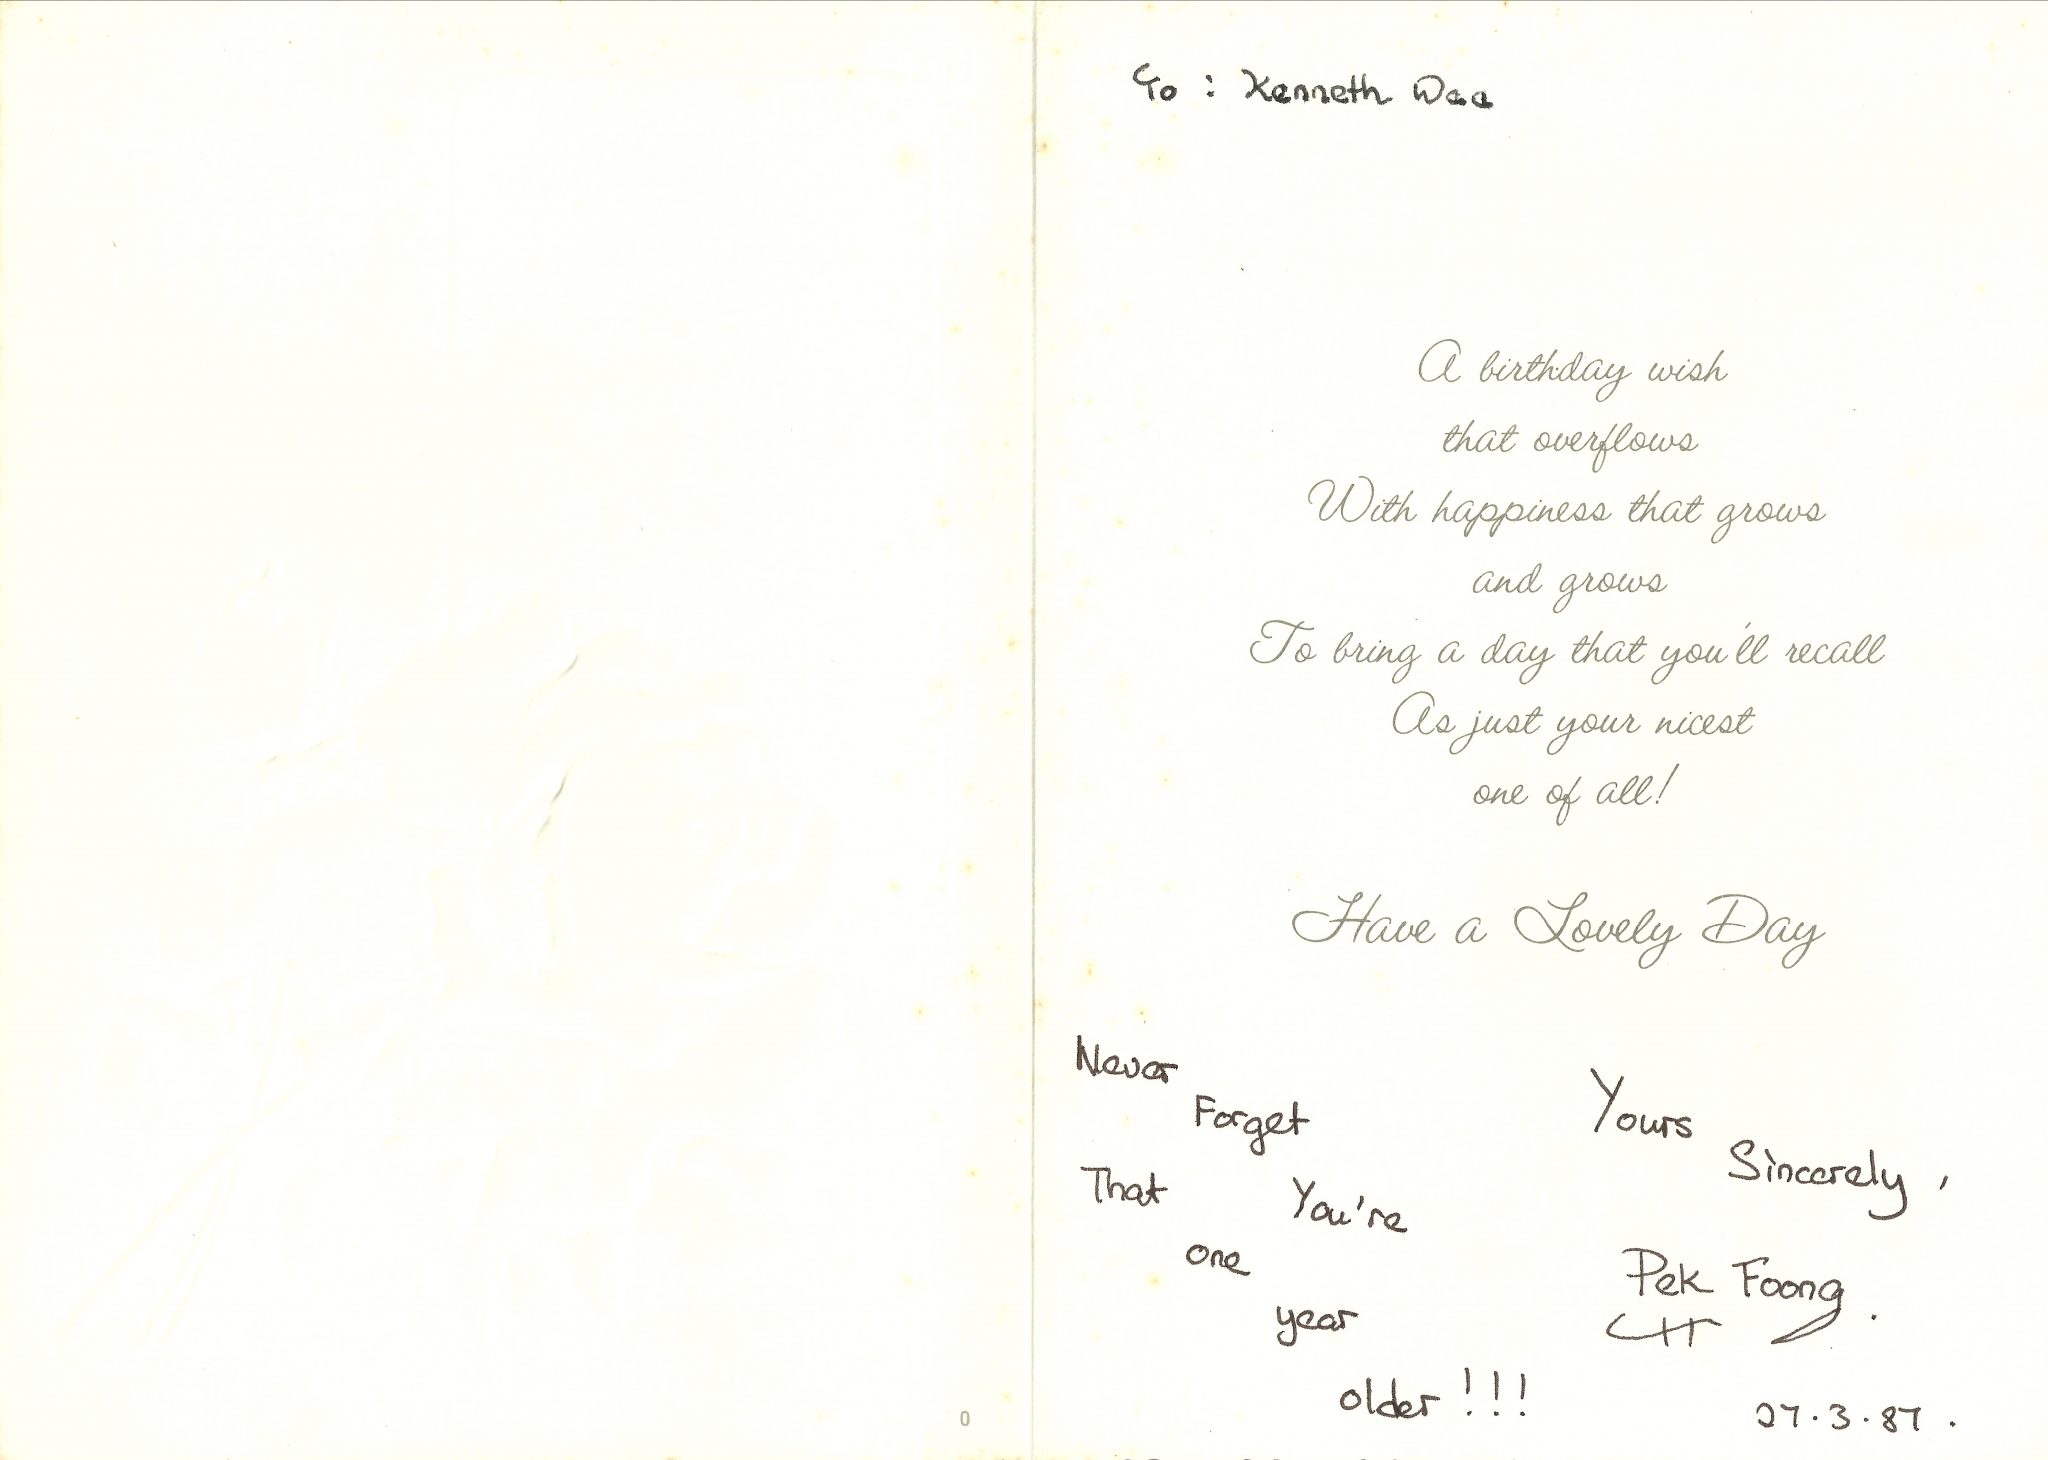 To : Kenneth Wee
A birthday wish
that overflows
With happiness that grows
and grows
To bring a day that you'll recall
As just your nicest
one of all!
Have a Lovely Day
Never
Forget
That You're
one
year
older !!!
Yours
Sincerely,
Pek Foong.
27.3.87.
0